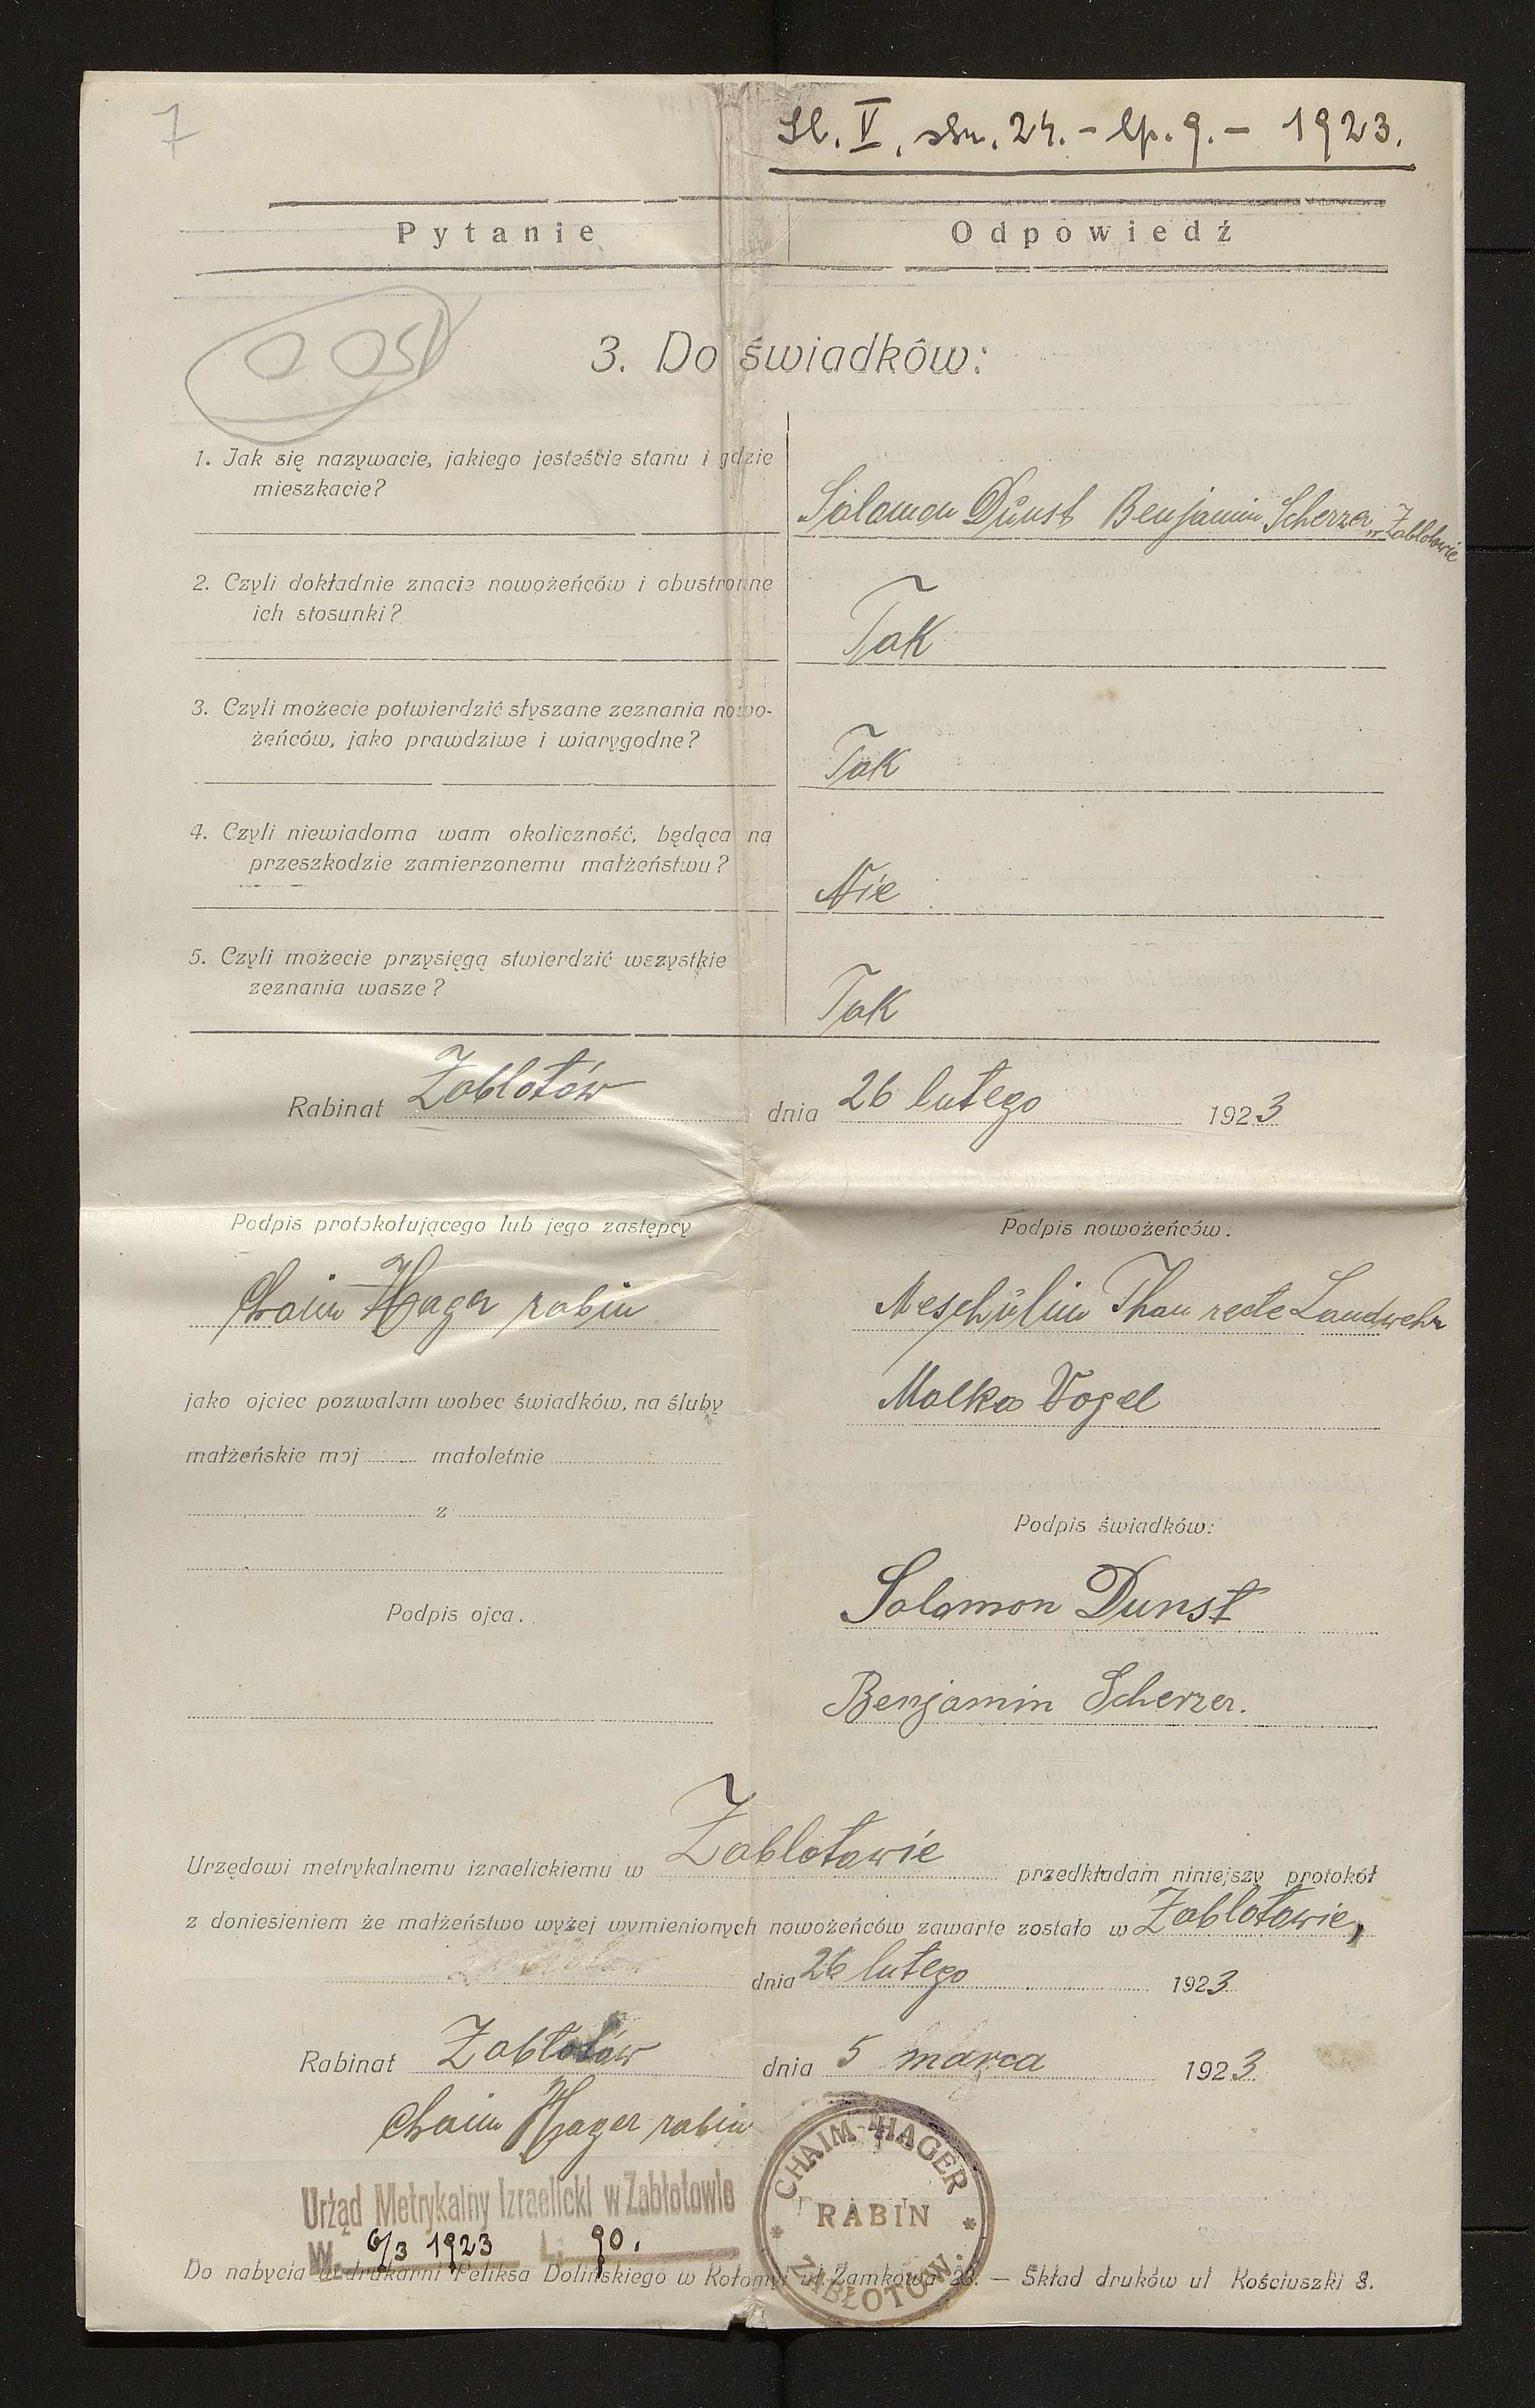 7
Sl. V, str. 24. - lp. 9. - 1923.
Pytanie Odpowiedź
3. Do świadków:
1. Jak się nazywacie, jakiego jesteście stanu i gdzie
mieszkacie?
Salamon Dŭnst Benjamin Scherzer w Zabłotowie
2. Czyli dokładnie znacie nowożeńców i obustronne
ich stosunki?
Tak
3. Czyli możecie potwierdzić słyszane zeznania nowo-
żeńców, jako prawdziwe i wiarygodne?
Tak
4. Czyli niewiadoma wam okoliczność, będąca na
przeszkodzie zamierzonemu małżeństwu?
Nie
5. Czyli możecie przysięgą stwierdzić wszystkie
zeznania wasze?
Tak
Rabinat Zabłotów dnia 26 lutego 1923
Podpis protokołującego lub jego zastępcy
Chaim Hager rabin
jako ojciec pozwalam wobec świadków, na śluby
małżeńskie moj małoletnie
z
Podpis ojca.
Podpis nowożeńców.
Meschŭlim Thau recte Landwehr
Malka Vogel
Podpis świadków:
Salomon Dunst
Benjamin Scherzer.
Urzędowi metrykalnemu izraelickiemu w Zabłotowie przedkładam niniejszy protokół
z doniesieniem że małżeństwo wyżej wymienionych nowożeńców zawarte zostało w Zabłotowie,
dnia 26 lutego 1923
Rabinat Zabłotów dnia 5 marca 1923
Chaim Hager rabin
CHAIM HAGER
RABIN
ZABŁOTÓW.
Urząd Metrykalny Izraelicki w Zabłotowie
W. 6/3 1923 L: 90.
Do nabycia w drukarni Feliksa Dolińskiego w Kołomyi ul. Zamkowa 28. — Skład druków ul Kościuszki 8.